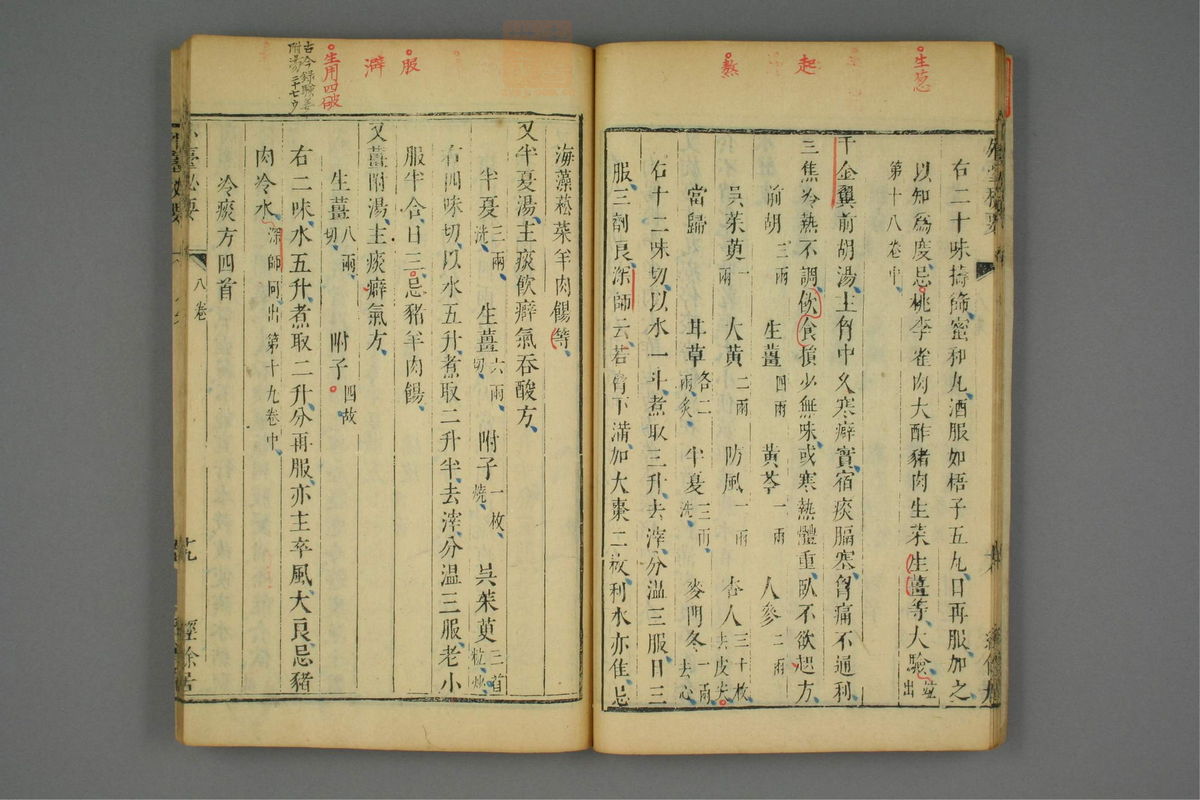 生葱
起
熬
右二十味擣篩蜜和丸酒服如梧子五丸日再服加之
以知爲度忌桃李雀肉大酢豬肉生菜生薑等大驗並出
第十八卷中
千金翼前胡湯主胷中久寒癖實宿痰膈塞胷痛不通利
三焦冷熱不調飲食損少無味或寒熱體重臥不欲起方
前胡三兩 生薑四兩 黃芩一兩 人參二兩
吳茱萸一兩 大黃二兩 防風一兩 杏人三十枚去皮尖
當歸 甘草各二兩炙 半夏三兩洗 麥門冬一兩去心
右十二味切以水一斗煮取三升去滓分温三服日三
服三劑良深師云若胷下滿加大棗二枚利水亦佳忌
海藻菘菜羊肉餳等
又半夏湯主痰飲癖氣吞酸方
半夏三兩洗 生薑六兩切 附子一枚燒 吳茱萸三百粒炒
右四味切以水五升煮取二升半去滓分温三服老小
服半合日三忌豬羊肉餳
又薑附湯主痰癖氣方
生薑八兩切 附子四枚
右二味水五升煮取二升分再服亦主卒風大良忌豬
肉冷水深師同出第十九卷中
冷痰方四首
服
澼
生用四破
八卷
經餘居